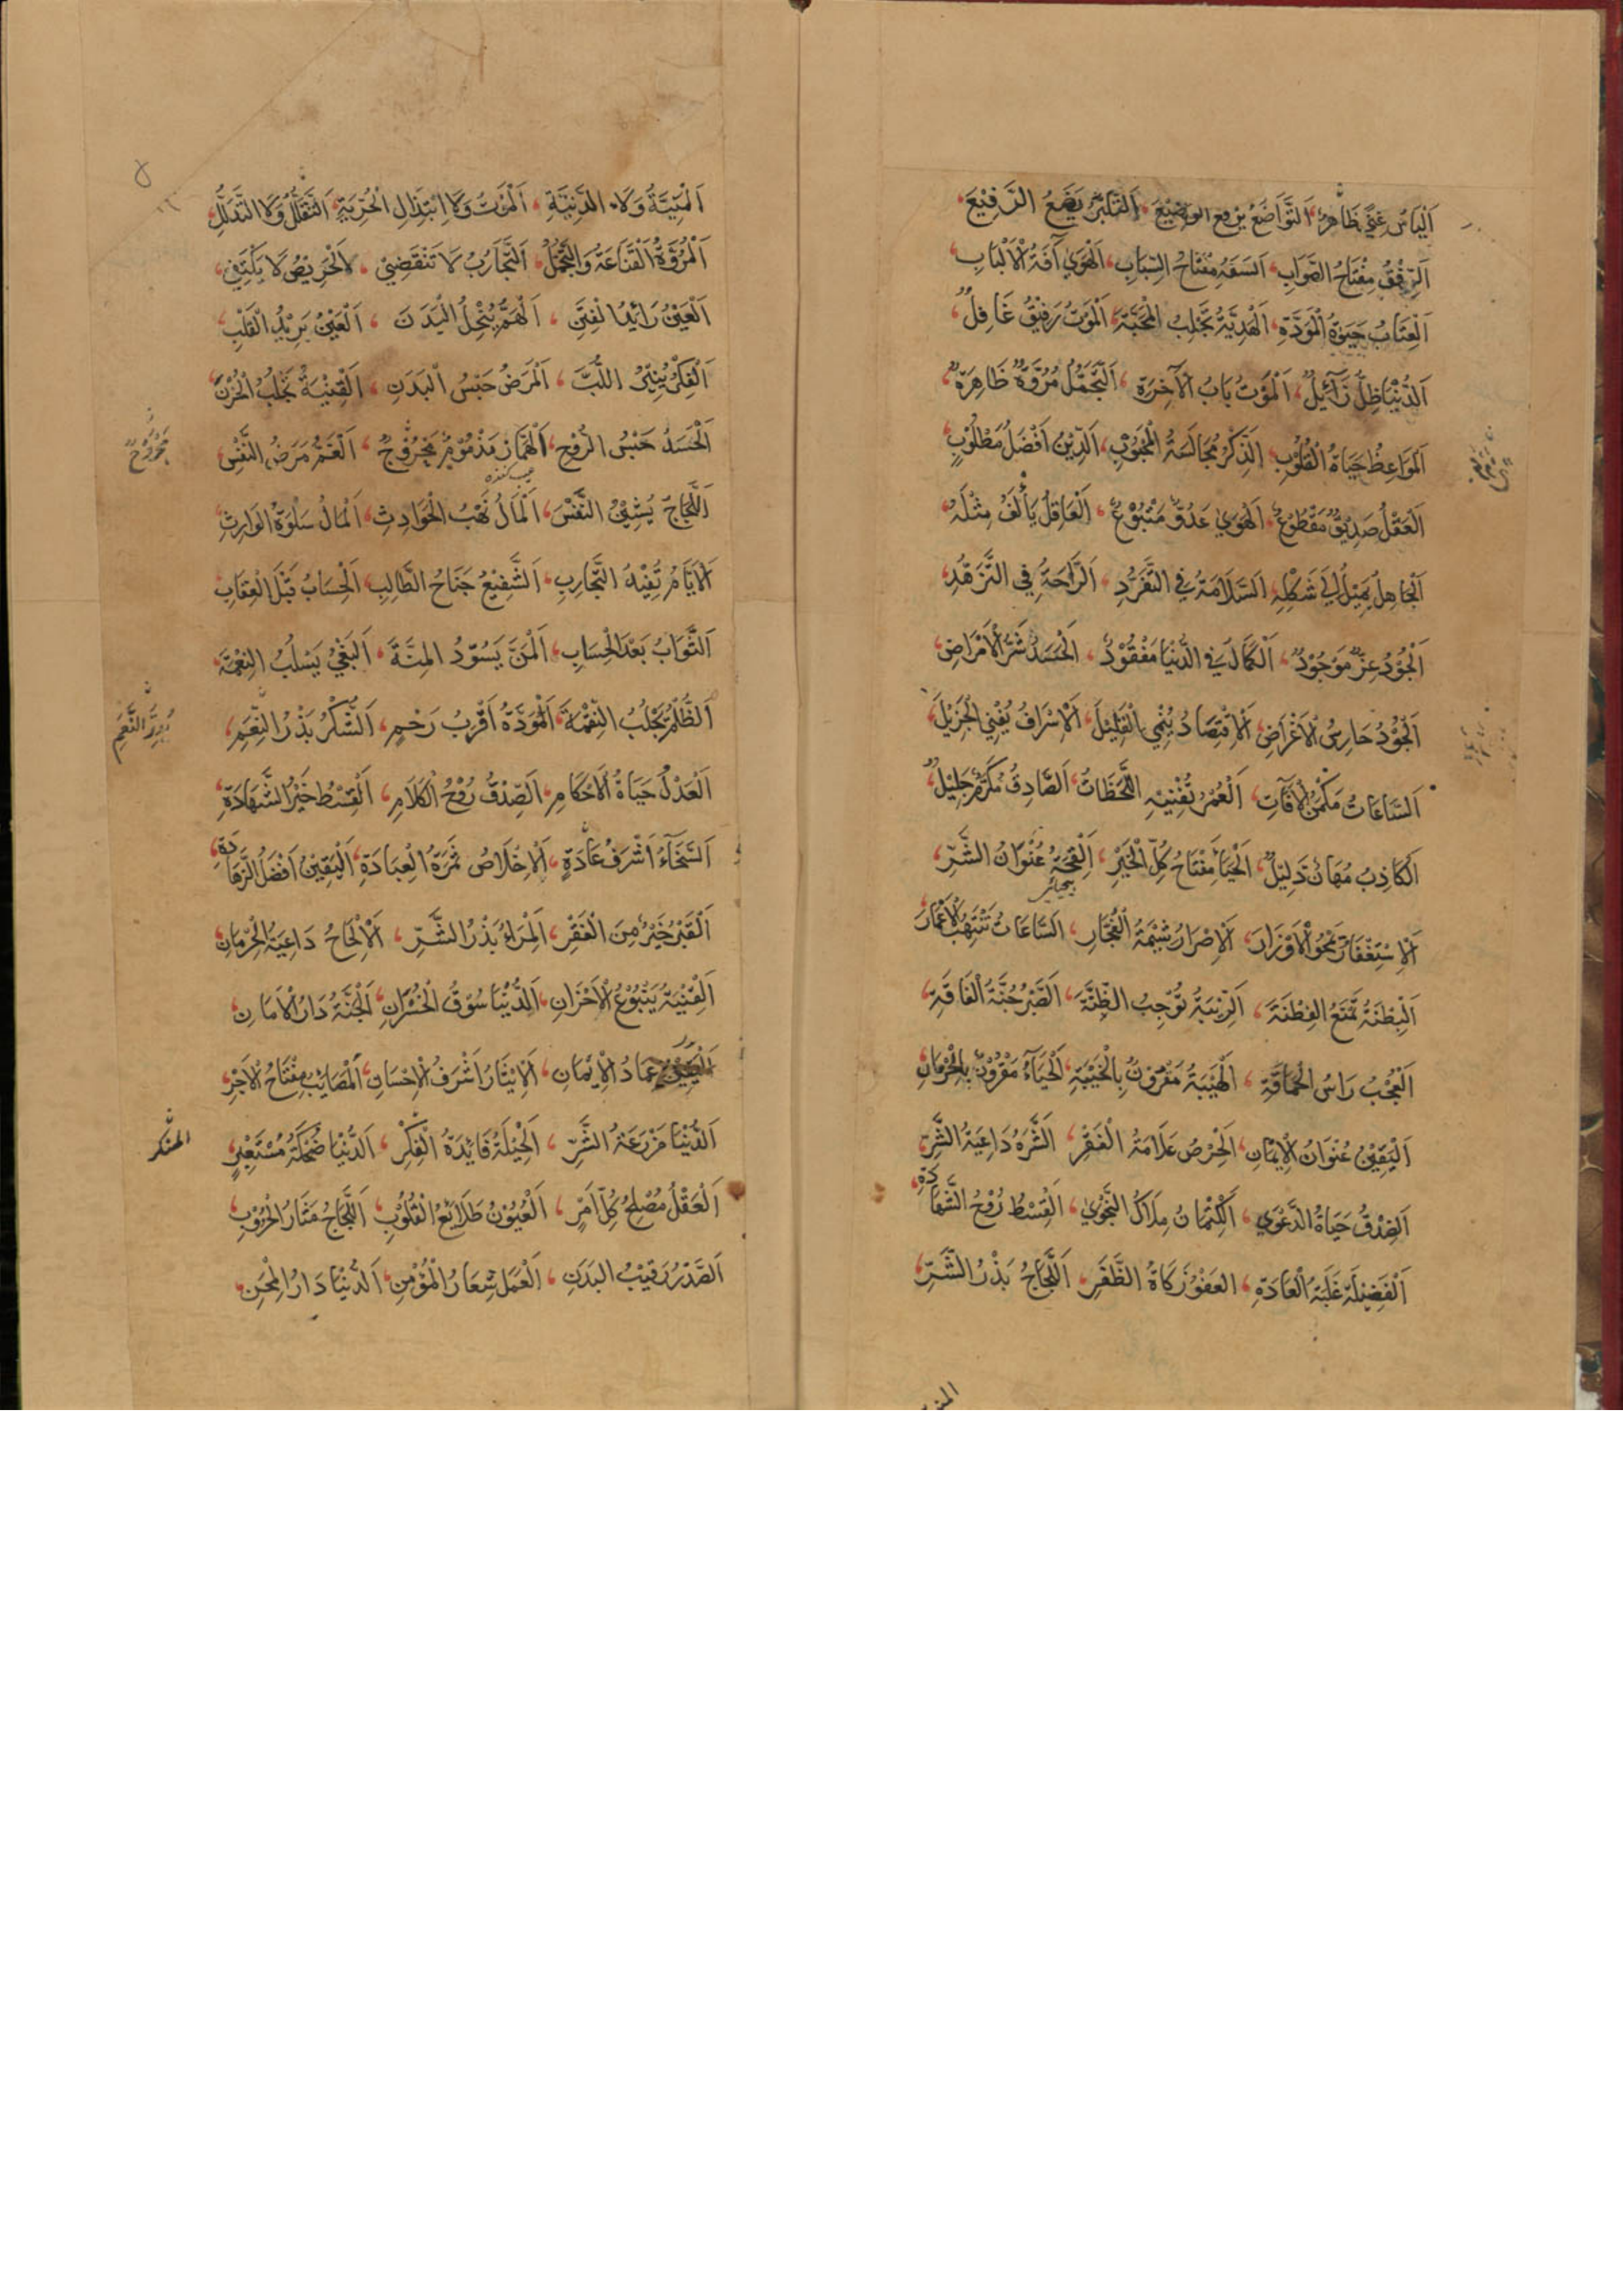 اَلْيَاسُ غِنًى ظَاهِرٌ، اَلتَّوَاضُعُ يَرْفَعُ الوَضِيْعَ، اَلتَّكَبُّرُ يَضَعُ الرَّفِيْعَ،
اَلرِّفْقُ مِفْتَاحُ الصَّوَابِ، اَلسَّفَهُ مِفْتَاحُ السِّبَابِ، اَلْهَوٰى آفَةُ الْاَلْبَابِ،
اَلْعِتَابُ حَيٰوةُ الْمَوَدَّةِ، اَلْهَدِيَّةُ تَجْلِبُ الْمَحَبَّةَ، اَلْمَوْتُ رَفِيْقٌ غَافِلٌ،
اَلدُّنْيَا ظِلٌّ زَآئِلٌ، اَلْمَوْتُ بَابُ الْآخِرَةِ، اَلتَّجَمُّلُ مُرُوَّةٌ ظَاهِرَةٌ،
اَلْمَوَاعِظُ حَيَاةُ الْقُلُوْبِ، اَلذِّكْرُ مُجَالَسَةُ الْمَحْبُوْبِ، اَلدِّيْنُ اَفْضَلُ مَطْلُوْبٍ،
اَلْعَقْلُ صَدِيْقٌ مَقْطُوْعٌ، اَلْهَوٰى عَدُوٌّ مَتْبُوْعٌ، اَلْعَاقِلُ يَأْلَفُ مِثْلَهُ،
اَلْجَاهِلُ يَمِيْلُ اِلٰى شَكْلِهِ، اَلسَّلَامَةُ فِي التَّفَرُّدِ، اَلرَّاحَةُ فِي التَّزَهُّدِ،
اَلْجُوْدُ عِزٌّ مَوْجُوْدٌ، اَلْكَمَالُ فِي الدُّنْيَا مَفْقُوْدٌ، اَلْحَسَدُ شَرُّ الْاَمْرَاضِ،
اَلْجُوْدُ حَارِسُ الْاَعْرَاضِ، اَلْاِقْتِصَادُ يُنْمِي الْقَلِيْلَ، اَلْاِسْرَافُ يُفْنِي الْجَزِيْلَ،
اَلسَّاعَاتُ مَكْمَنُ الْاٰفَاتِ، اَلْعُمُرُ تُفْنِيْهِ اللَّحَظَاتُ، اَلصَّادِقُ مُكَرَّمٌ جَلِيْلٌ،
اَلْكَاذِبُ مُهَانٌ ذَلِيْلٌ، اَلْحَيَاءُ مِفْتَاحُ كُلِّ الْخَيْرِ، اَلْقِحَةُ عُنْوَانُ الشَّرِّ،
اَلْاِسْتِغْفَارُ يَمْحُو الْاَوْزَارَ، اَلْاِصْرَارُ شِيْمَةُ الْفُجَّارِ، اَلسَّاعَاتُ تَنْتَهِبُ الْاَعْمَارَ
اَلْبِطْنَةُ تَمْنَعُ الفِطْنَةَ، اَلرِّيْبَةُ تُوْجِبُ الظِّنَّةَ، اَلصَّبْرُ جُنَّةُ الْفَاقَةِ،
اَلْعُجْبُ رَاسُ الْحَمَاقَةِ، اَلْهَيْبَةُ مَقْرُوْنٌ بِالْخَيْبَةِ، اَلْحَيَآءُ مَقْرُوْنٌ بِالْحِرْمَانِ
اَلْيَقِيْنُ عُنْوَانُ الْاِيْمَانِ، اَلْحِرْصُ عَلَامَةُ الْفَقْرِ، اَلشَّرَهُ دَاعِيَةُ الشَّرِّ،
اَلصِّدْقُ حَيَاةُ الدَّعْوٰى، اَلْكِتْمَانُ مِلَاكُ النَّجْوٰى، اَلْقِسْطُ رُوْحُ الشَّهَادَةِ،
اَلْفَضِيْلَةُ غَلَبَةُ الْعَادَةِ، اَلعَفْوُ زَكَاةُ الظَّفَرِ، اَللَّجَاجُ بَذْرُ الشَّرِّ،
اَلْمَنِيَّةُ وَلَا الدَّنِيَّةِ، اَلْمَوْتُ وَلَا ابْتِذَالِ الْحُرِّيَّةِ، اَلتَّقَلُّلُ وَلَا التَّذَلُّلِ
اَلْمُرُوَّةُ الْقَنَاعَةُ وَالتَّجَمُّلُ، اَلتَّجَارُبُ لَا تَنْقَضِيْ، اَلْحَرِيْصُ لَا يَكْتَفِيْ،
اَلْعَيْنُ رَائِدُ الْفِتَنِ، اَلْهَمُّ يُنْحِلُ الْبَدَنَ، اَلْعَيْنُ بَرِيْدُ الْقَلْبِ،
اَلْفِكْرُ يُنِيْرُ اللُّبَّ، اَلْمَرَضُ حَبْسُ الْبَدَنِ، اَلْقِنْيَةُ تَجْلِبُ الْحُزْنَ،
اَلْحَسَدُ حَبْسُ الرُّوْحِ، اَلْهَمَّازُ مَذْمُوْمٌ مَجْرُوْحٌ، اَلْغَمُّ مَرَضُ النَّفْسِ
مَجْرُوْحٌ
اَللَّجَاجُ يُشِيْنُ النَّفْسَ، اَلْمَالُ نَهْبُ الْحَوَادِثِ، اَلْمَالُ سَلْوَةُ الوَارِثِ،
اَلْاَيَّامُ تُفِيْدُ التَّجَارِبَ، اَلشَّفِيْعُ جَنَاحُ الطَّالِبِ، اَلْحِسَابُ قَبْلَ الْعِقَابِ،
اَلثَّوَابُ بَعْدَ الْحِسَابِ، اَلْمَنُّ يُسَوِّدُ المِنَّةَ، اَلبَغْيُ يَسْلُبُ النِّعْمَةَ،
اَلظُّلْمُ يَجْلُبُ النِّقْمَةَ، اَلْمَوَدَّةُ اَقْرَبُ رَحْمٍ، اَلشُّكْرُ بَذْرُ النِّعَمِ،
اَلْعَدْلُ حَيَاةُ الْاَحْكَامِ، اَلصِّدْقُ رُوْحُ الْكَلَامِ، اَلْقِسْطُ خَيْرُ الشَّهَادَةِ،
اَلسَّخَآءُ اَشْرَفُ عَادَةٍ، اَلْاِخْلَاصُ ثَمَرَةُ الْعِبَادَةِ، اَلْيَقِيْنُ اَفْضَلُ الزَّهَادَةِ،
اَلْقَبْرُ خَيْرٌ مِنَ الْفَقْرِ، اَلْمِرَاءُ بَذْرُ الشَّرِّ، اَلْاِلْحَاحُ دَاعِيَةُ الْحِرْمَانِ
اَلْقِنْيَةُ يَنْبُوْعُ الْاَحْزَانِ، اَلدُّنْيَا سُوْقُ الْخُسْرَانِ، اَلْجَنَّةُ دَارُ الْاَمَانِ
عِمَادُ الْاِيْمَانِ، اَلْاِيْثَارُ اَشْرَفُ الْاِحْسَانِ، اَلْمَصَائِبُ مِفْتَاحُ الْاَجْرِ،
اَلدُّنْيَا مَزْرَعَةُ الشَّرِّ، اَلْحِيْلَةُ فَائِدَةُ الْفِكْرِ، اَلدُّنْيَا ضُحْكَةُ مُسْتَعْبِرٍ
اَلْعَقْلُ مُصْلِحُ كُلِّ اَمْرٍ، اَلْعُيُوْنُ طَلَائِعُ الْقُلُوْبِ، اَللَّجَاجُ مَثَارُ الْحُرُوْبِ،
اَلصَّدْرُ رَقِيْبُ البَدَنِ، اَلْعَمَلُ شِعَارُ الْمُؤْمِنِ، اَلدُّنْيَا دَارُ الْمِحَنِ،